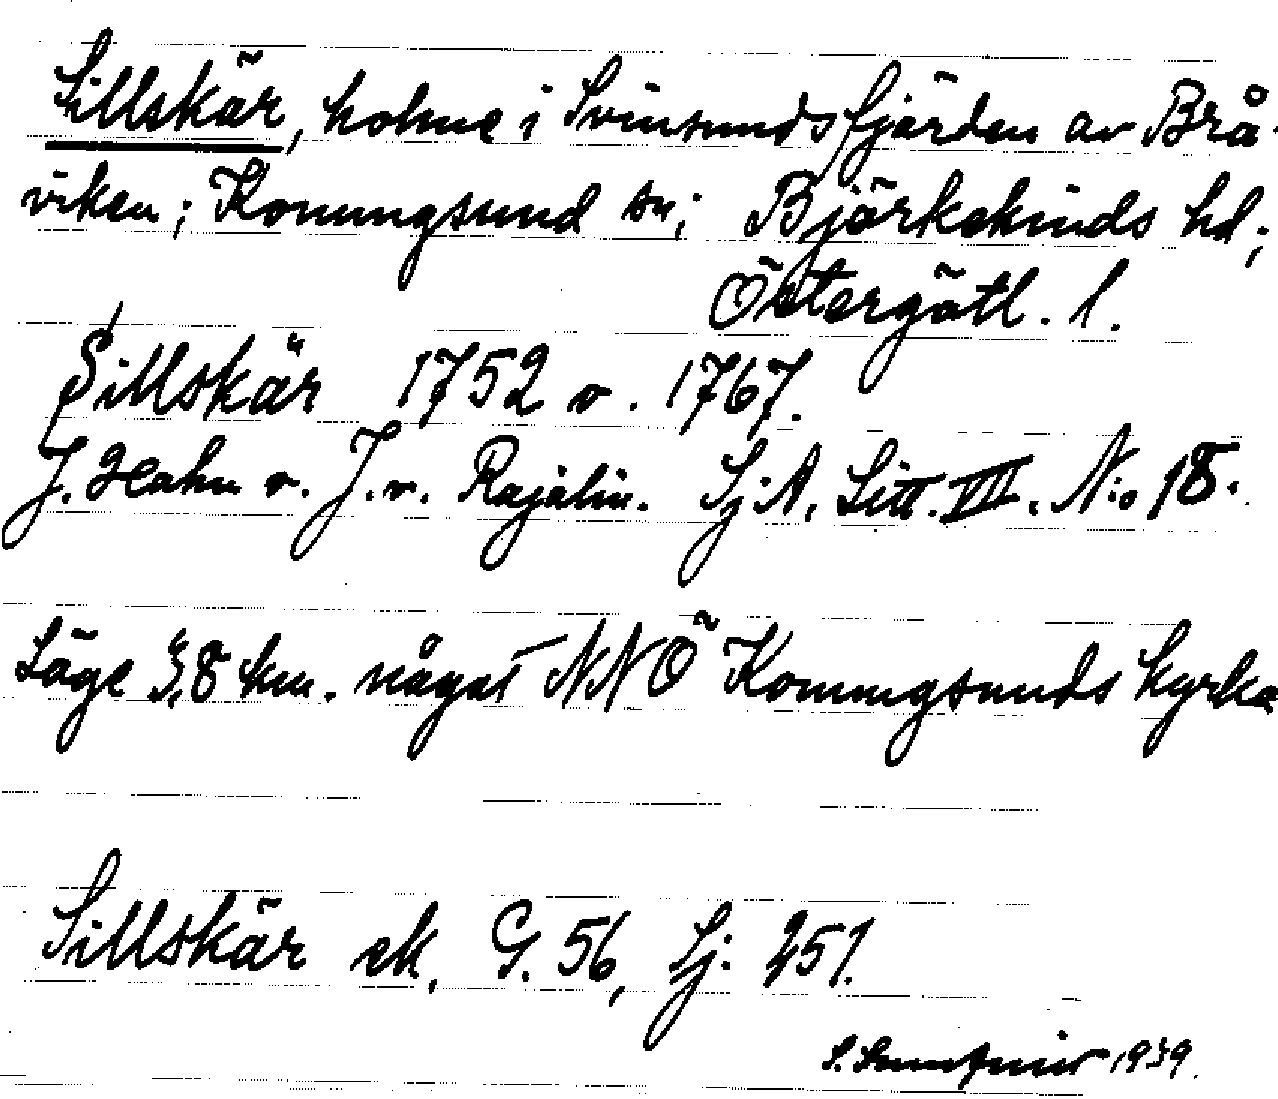 Sillskär, holme i Svinsundsfjärden av Brå-
viken; Konungsund sn; Björkekinds hd;
Östergötl. l.
Sillskär 1752 o. 1767.
J. Hahn o. J. v. Rajalin. Sj:A. Litt. VII. N:o 18.
Läge 3,8 km. något NNÖ Konungsunds kyrka
Sillskär ek. G. 56, Sj: 251.
S. 1939.